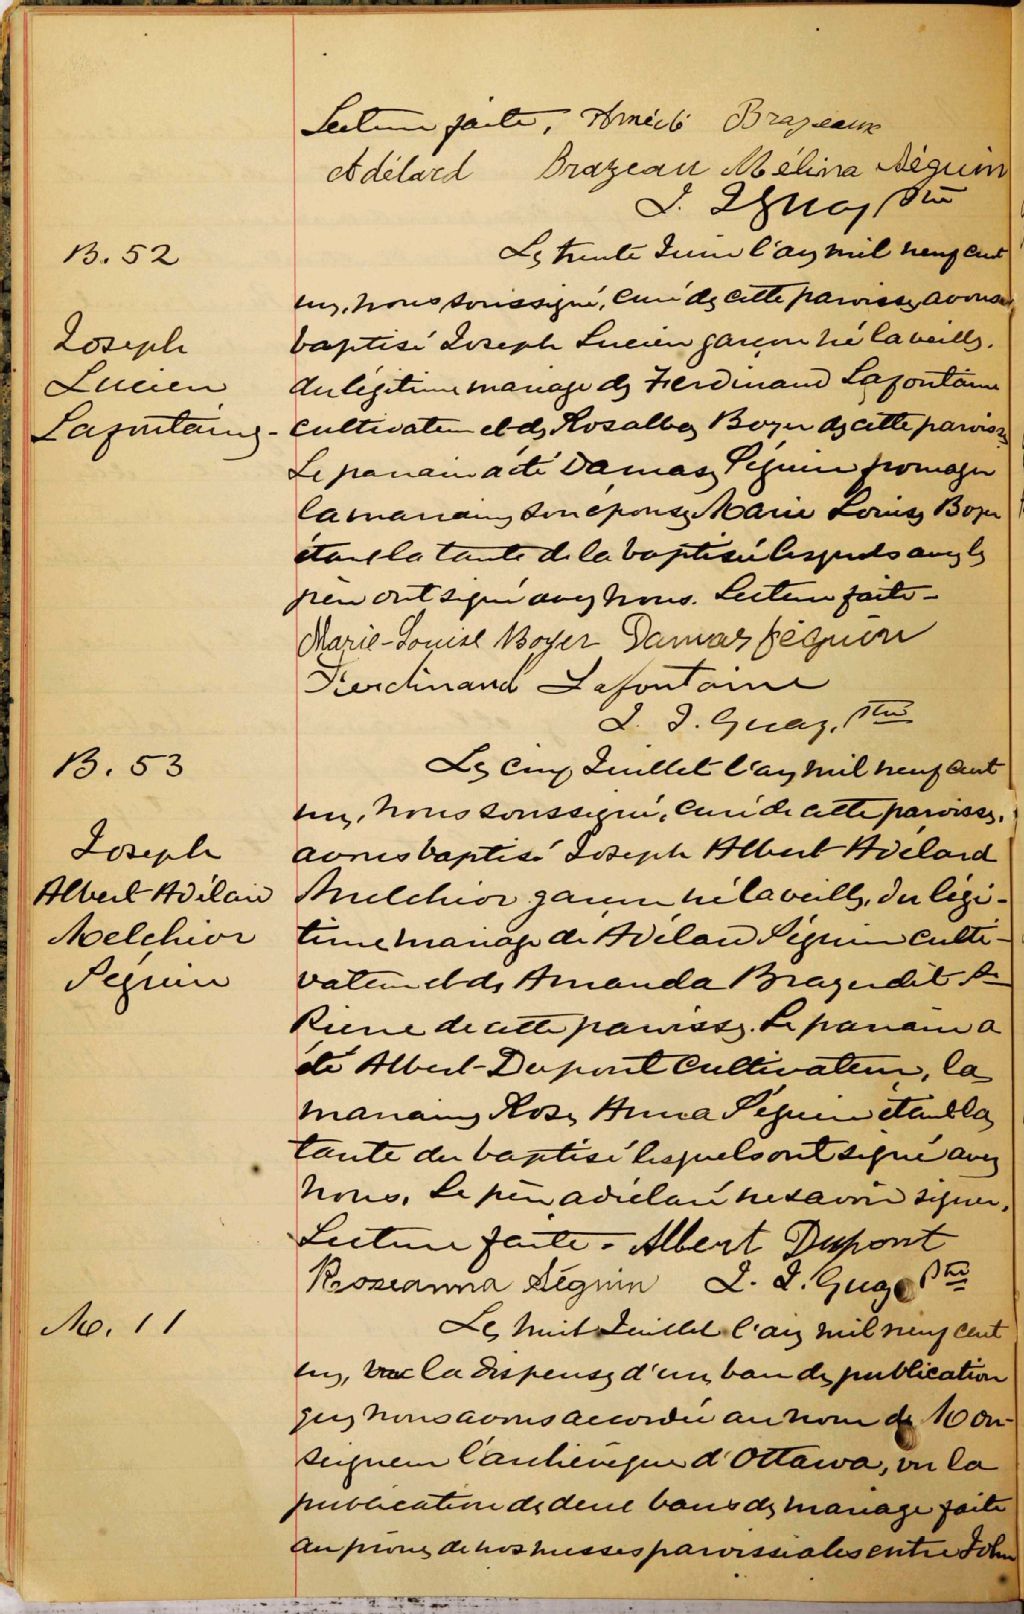 Lecture faite, Amédé Brazeaux
Adélard Brazeau Mélina Séguin
J. J. Guay Ptre
B. 52
Le trente Juin l'an mil neuf cent
un, nous soussigné, curé de cette paroisse, avons
Joseph
baptisé Joseph Lucien garçon né la veille,
Lucien
du légitime mariage de Ferdinand Lafontaine
Lafontaine -
cultivateur et de Rosalba Boyer de cette paroisse
Le parrain a été Damase Séguin fromager
la marraine son épouse Marie Louise Boyer
étant la tante de la baptisée lesquels avec le
père ont signé avec nous. Lecture faite -
Marie-Louise Boyer Damas Séguin
Ferdinand Lafontaine
J. J. Guay, Ptre
B. 53
Le cinq Juillet l'an mil neuf cent
un, nous soussigné, curé de cette paroisse,
Joseph
avons baptisé Joseph Albert Adélard
Albert Adélard
Melchior garçon né la veille, du légi-
Melchior
time mariage de Adélard Séguin culti-
Séguin
vateur et de Amanda Brazeau dit St
Pierre de cette paroisse. Le parrain a
été Albert Dupont cultivateur, la
marraine Rose Anna Séguin étant la
tante du baptisé lesquels ont signé avec
nous. Le père a déclaré ne savoir signer.
Lecture faite - Albert Dupont
Roseanna Séguin J. J. Guay Ptre
M. 11
Le huit Juillet l'an mil neuf cent
un, vu la dispense d'un ban de publication
que nous avons accordée au nom de Mon-
seigneur l'archevêque d'Ottawa, vu la
publication de deux bans de mariage faite
au prône de nos messes paroissiales entre John